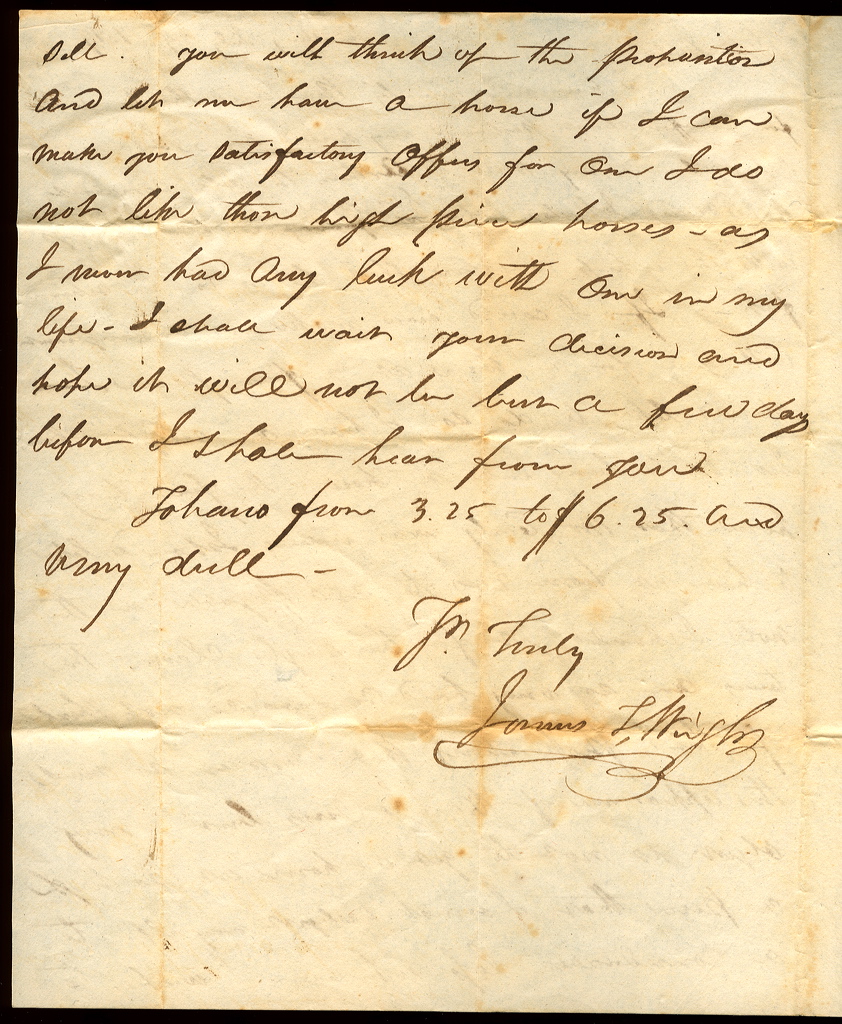 sell. you will think of the Proposition
and let me have a horse if I can
make you satisfactory Offers for one I do
not like those high price horses - as
I never had any luck with one in my
life - I shall wait your decision and
hope it will not be but a few days
before I shall hear from you
Tobacco from 3.25 to $6.25. and
very dull -
Yrs. Truly
James T. Wright